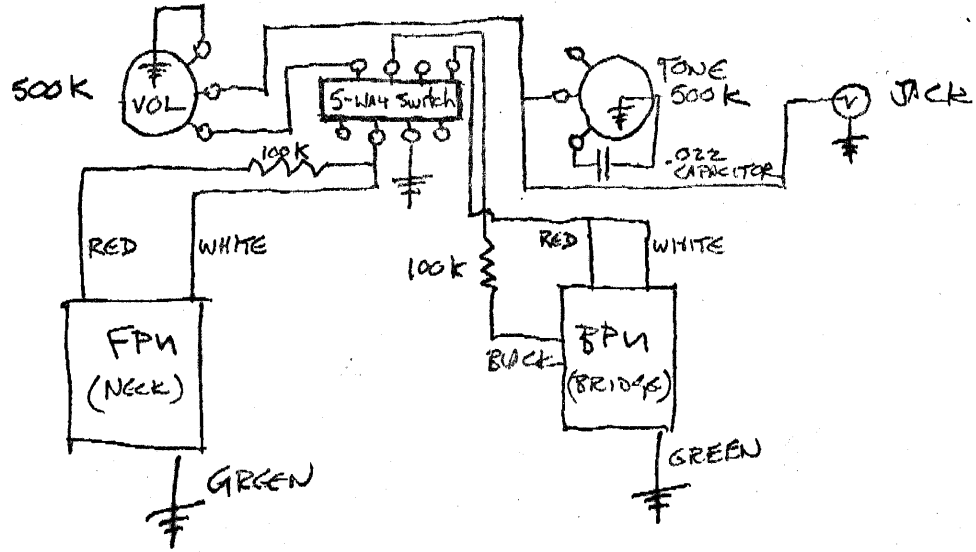 500K
VOL
5-WAY Switch
TONE
500K
JACK
100K
.022
CAPACITOR
RED
WHITE
RED
WHITE
100K
BLACK
FPU
(NECK)
BPU
(BRIDGE)
GREEN
GREEN